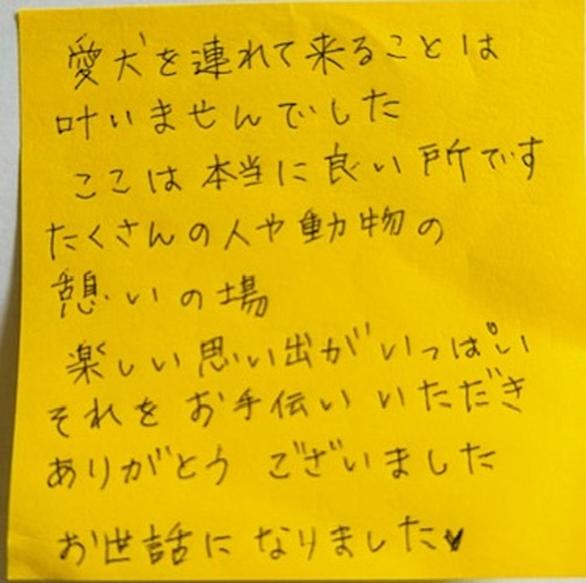 愛犬を連れて来ることは
叶いませんでした
ここは本当に良い所です
たくさんの人や動物の
憩いの場
楽しい思い出がいっぱい
それをお手伝いいただき
ありがとう ございました
お世話になりました♥